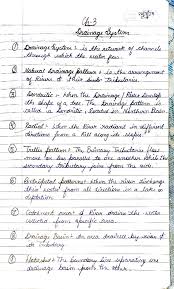 Ch-3
Drainage System
① Drainage System : is the network of channels
through which the water flow.
② Natural Drainage pattern : is the arrangement
of Rivers & their tributaries.
③ Dendritic :- when the Drainage / River Develop
the shape of a tree. The Drainage pattern is
called a Dendritic, located in Northern Basin
④ Radial :- when the River radiant in different
directions from a Hill along its slopes.
⑤ Trellis pattern :- The Primary Tributaries flow
parallel to one another while the
secondary tributary join from the side.
⑥ Centripetal pattern :- when the river discharge
their water from all direction in a lake or
depression
⑦ Catchment area of River drains the water
collected from specific area.
⑧ Drainage Basin :- An area drained by river &
its tributary
⑨ Watershed :- The boundary line separating one
drainage basin from the other.